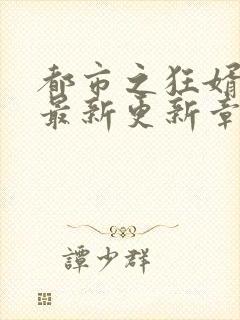 都市之狂婿
最新更新章
譚少群